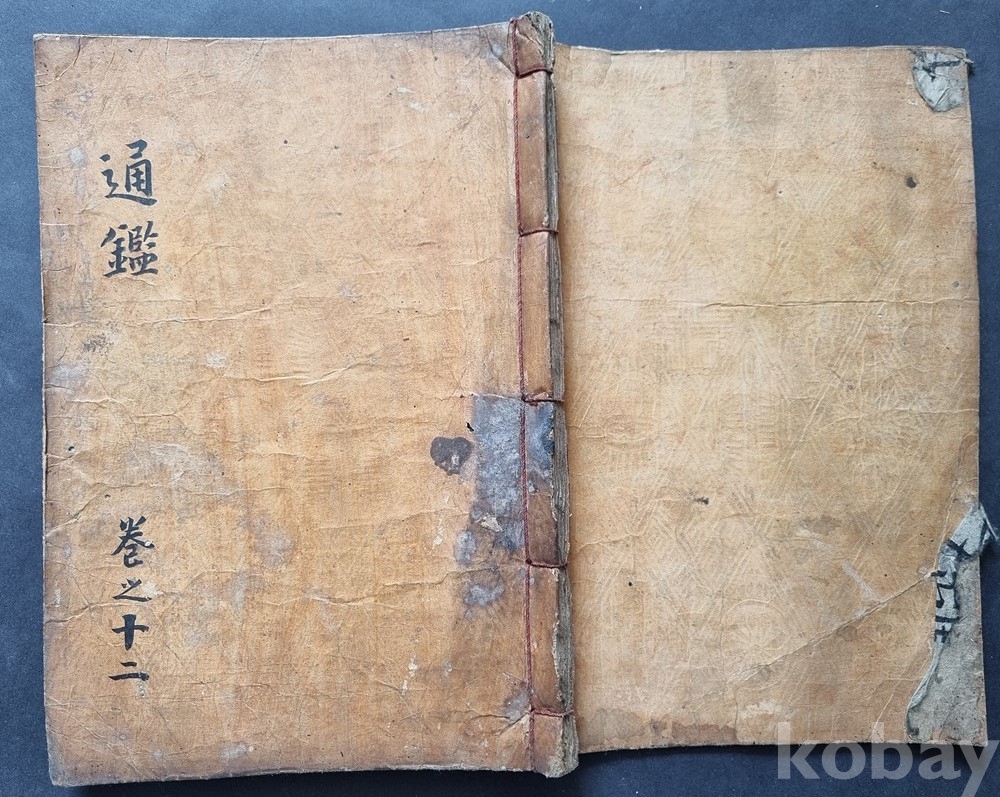 通鑑
卷之十二
kobay